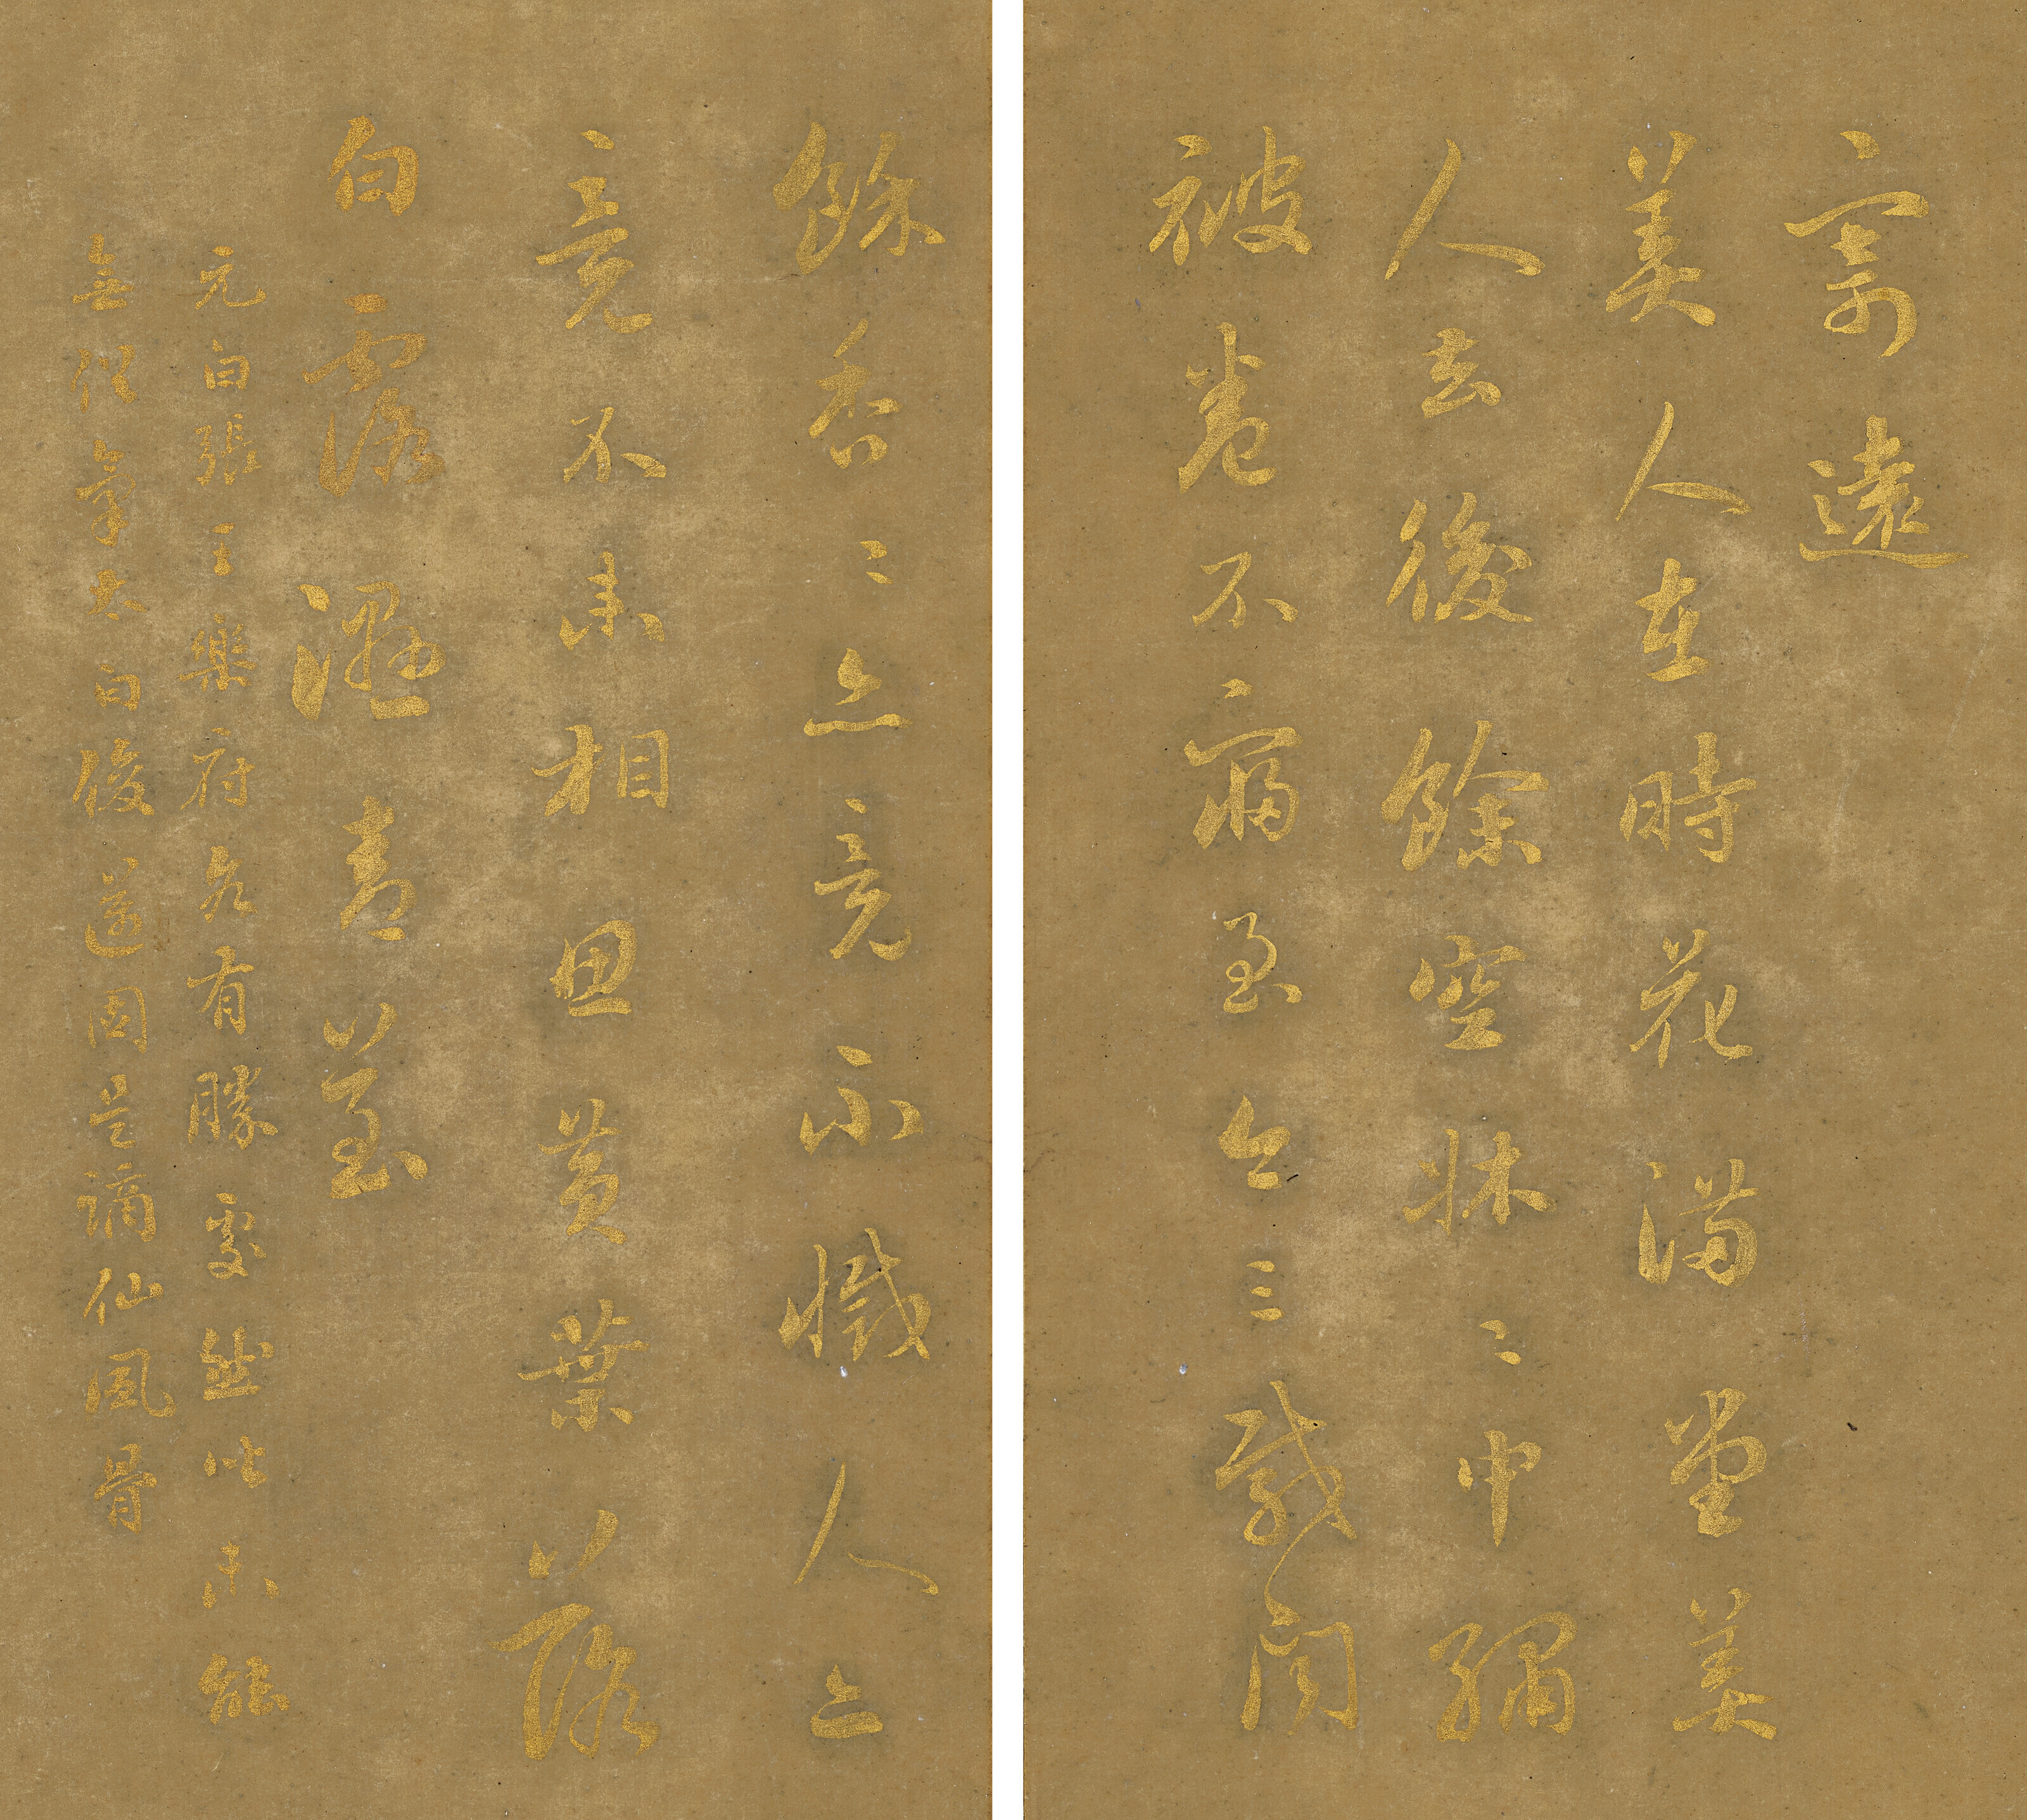 寄遠
美人在時花滿堂美
人去後餘空牀〻中繡
被卷不寢至今三載聞
餘香〻亦竟不滅人亦
竟不來相思黃葉落
白露濕青苔
元白張王樂府各有勝處然似未能
無俗氣太白俊逸固是謫仙風骨